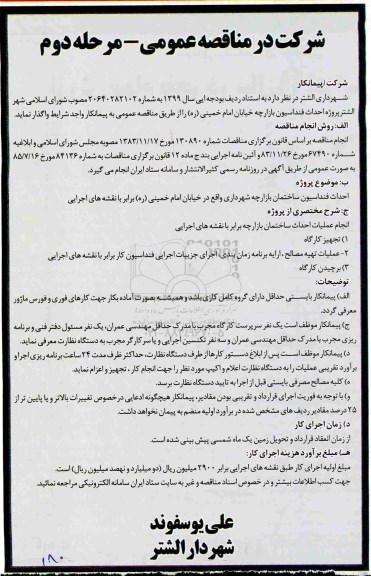 شرکت در مناقصه عمومی - مرحله دوم
شرکت / پیمانکار
شهرداری الشتر در نظر دارد به استناد ردیف بودجه ایی سال ۱۳۹۹ به شماره ۲۰۶۴۰۲۸۲۱۰۲ مصوب شورای اسلامی شهر
الشتر پروژه احداث فنداسیون بازارچه خیابان امام خمینی (ره) را از طریق مناقصه عمومی به پیمانکار واجد شرایط واگذار نماید.
الف: روش انجام مناقصه
انجام مناقصه بر اساس قانون برگزاری مناقصات شماره ۱۳۰۸۹۰ مورخ ۱۳۸۳/۱۱/۱۷ مصوبه مجلس شورای اسلامی و ابلاغیه
شماره ۶۷۴۹۰ مورخ ۸۳/۱۱/۲۶ و آئین نامه اجرایی بند ج ماده ۱۲ قانون برگزاری مناقصات به شماره ۸۴۱۳۶ مورخ ۸۵/۷/۱۶
به صورت عمومی از طریق آگهی در روزنامه رسمی کثیرالانتشار و سامانه ستاد ایران انجام می گیرد.
ب: موضوع پروژه
احداث فنداسیون ساختمان بازارچه شهرداری واقع در خیابان امام خمینی (ره) برابر با نقشه های اجرایی
ج: شرح مختصری از پروژه
انجام عملیات احداث ساختمان بازارچه برابر با نقشه های اجرایی
۱) تجهیز کارگاه
۲- عملیات تهیه مصالح ، ارایه برنامه زمان بندی، اجرای جزییات اجرایی فنداسیون کار برابر با نقشه های اجرایی
۳) برچیدن کارگاه
توضیحات:
الف) پیمانکار بایستی حداقل دارای گروه کامل کاری باشد و همیشه بصورت آماده بکار جهت کارهای فوری و فورس ماژور
معرفی گردد.
ج) پیمانکار موظف است یک نفر سرپرست کارگاه مجرب با مدرک حداقل مهندسی عمران، یک نفر مسئول دفتر فنی و برنامه
ریزی مجرب با مدرک حداقل مهندسی عمران و سه نفر تکنسین اجرایی و یا سر کارگر مجرب به دستگاه نظارت معرفی نماید.
د) پیمانکار موظف است پس از ابلاغ دستور کارها از طرف دستگاه نظارت، حداکثر ظرف مدت ۲۴ ساعت برنامه ریزی اجرا و
برآورد تقریبی عملیات را به دستگاه نظارت اعلام و اکیپ مورد نظر را جهت انجام کار ، تجهیز و اعزام نماید.
ه) کلیه مصالح مصرفی بایستی قبل از اجرا به تایید دستگاه نظارت برسد.
و) با توجه به فوریت اجرای قرارداد و تقریبی بودن مقادیر، پیمانکار هیچگونه ادعایی در خصوص تغییرات بالاتر و یا پایین تر از
۲۵ درصد مقادیر ردیف های مشخص شده در برآورد اولیه منضم به پیمان نخواهد داشت.
د) زمان اجرای کار
از زمان انعقاد قرارداد و تحویل زمین یک ماه شمسی پیش بینی شده است.
هـ) مبلغ برآورد هزینه اجرای کار:
مبلغ اولیه اجرای کار طبق نقشه های اجرایی برابر ۲۹۰۰ میلیون ریال (دو میلیارد و نهصد میلیون ریال) است.
جهت کسب اطلاعات بیشتر و در خصوص اسناد مناقصه و غیره به سایت ستاد ایران سامانه الکترونیکی مراجعه نمائید.
علی یوسفوند
شهردار الشتر